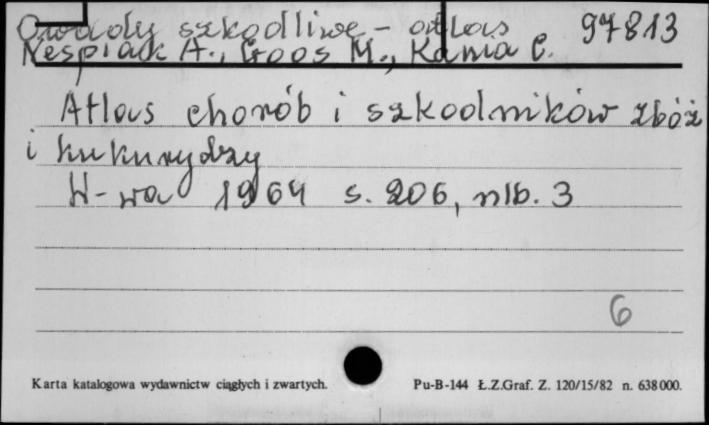 Owady szkodliwe - atlas 97813
Nespiak A., Goos M., Kania C.
Atlas chorób i szkodników zbóż
i kukurydzy
W-wa 1964 s. 206, nlb. 3
6
Karta katalogowa wydawnictw ciągłych i zwartych.
Pu-B-144 Ł.Z.Graf. Z. 120/15/82 n. 638000.